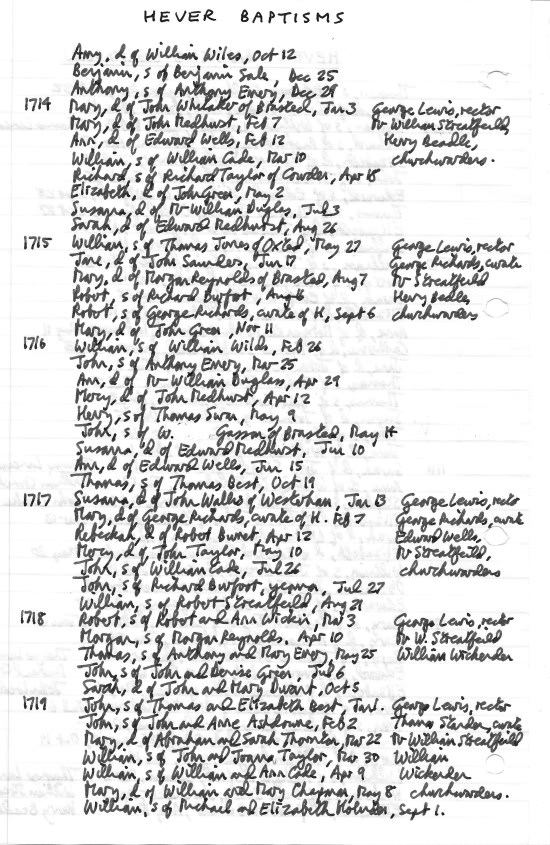 HEVER BAPTISMS
Amy, d of William Wiles, Oct 12
Benjamin, s of Benjamin Sale, Dec 25
Anthony, s of Anthony Emery, Dec 29
1714 Mary, d of John Whitaker of Brasted, Jan 3 George Lewis, rector
Mary, d of John Medhurst, Feb 7 Mr William Streatfeild,
Ann, d of Edward Wells, Feb 12 Henry Beadle,
William, s of William Cade, Mar 10 churchwardens.
Richard, s of Richard Taylor of Cowden, Apr 18
Elizabeth, d of John Green, May 2
Susanna, d of Mr William Duglas, Jul 3
Sarah, d of Edward Medhurst, Aug 26
1715 William, s of Thomas Jones of Oxted, May 27 George Lewis, rector
Jane, d of John Saunders, Jun 17 George Richards, curate
Mary, d of Morgan Reynolds of Brasted, Aug 7 Mr Streatfield
Robert, s of Richard Burfot, Aug 16 Henry Beadle,
Robert, s of George Richards, curate of H, Sept 6 churchwardens
Mary, d of John Green Nov 11
1716 William, s of William Wilds, Feb 26
John, s of Anthony Emery, Mar 25
Ann, d of Mr William Duglass, Apr 29
Mercy, d of John Medhurst, Apr 12
Henry, s of Thomas Swan, May 9
John, s of W. Gasson of Brasted, May 14
Susanna, d of Edward Medhurst, Jun 10
Ann, d of Edward Wells, Jun 15
Thomas, s of Thomas Best, Oct 19
1717 Susanna, d of John Wallis of Westerham, Jan 13 George Lewis, rector
Mary, d of George Richards, curate of H. Feb 7 George Richards, curate
Rebeckah, d of Robert Buret, Apr 12 Edward Wells,
Mercy, d of John Taylor, May 10 Mr Streatfeild,
John, s of William Cade, Jul 26 churchwardens
John, s of Richard Burfoot, yeoman, Jul 27
William, s of Robert Streatfeild, Aug 21
1718 Robert, s of Robert and Ann Wickin, Mar 3 George Lewis, rector
Morgan, s of Morgan Reynolds. Apr 10 Mr W. Streatfeild
Thomas, s of Anthony and Mary Emery, May 25 William Wickenden
John, s of John and Denise Green, Jul 6
Sarah, d of John and Mary Durant, Oct 5
1719 John, s of Thomas and Elizabeth Best, Jan 1. George Lewis, rector
John, s of John and Anne Ashdowne, Feb 2 Thomas curate
Mary, d of Abraham and Sarah Thornton, Mar 22 Mr William Streatfeild
William, s of John and Joanna Taylor, Mar 30 William
William, s of William and Ann Cade, Apr 9 Wickenden
Mary, d of William and Mary Chapman, May 8 churchwardens.
William, s of Michael and Elizabeth Sept 1.